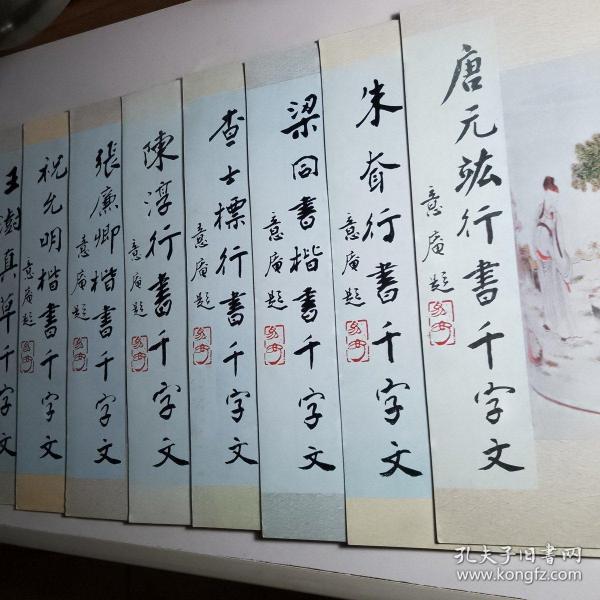 唐元竑行書千字文
意庵題
朱耷行書千字文
意庵題
梁同書楷書千字文
意庵題
查士標行書千字文
意庵題
陳淳行書千字文
意庵題
張廉卿楷書千字文
意庵題
祝允明楷書千字文
意庵題
王澍真草千字文
孔夫子旧书网
www.kongfz.com